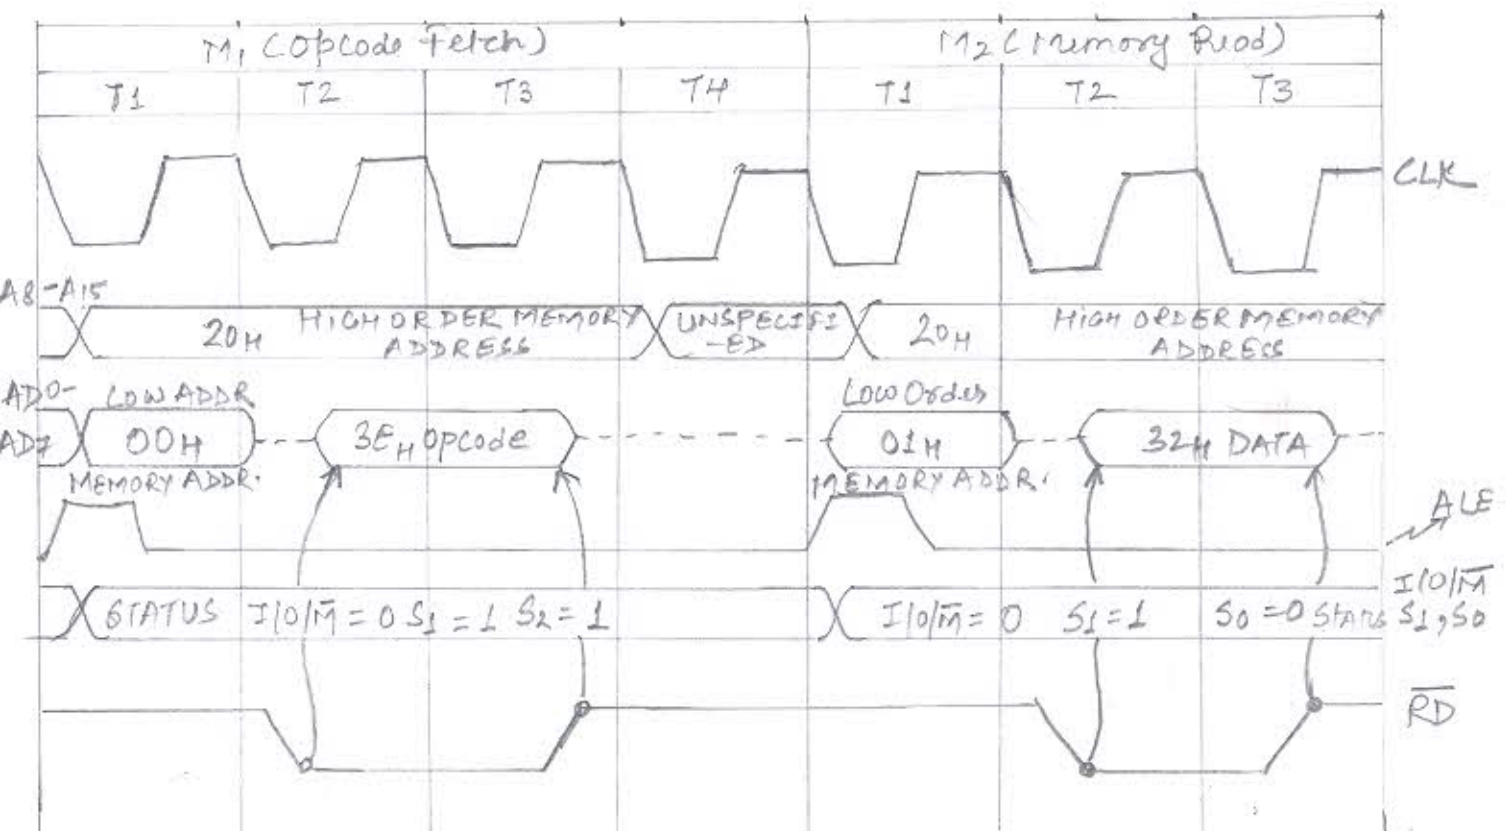 M1 (Opcode Fetch) M2 (Memory Read)
T1 T2 T3 T4 T1 T2 T3
CLK
A8-A15
20H HIGH ORDER MEMORY ADDRESS
UNSPECIFI-ED
20H HIGH ORDER MEMORY ADDRESS
AD0-AD7
LOW ADDR
00H
MEMORY ADDR.
3EH Opcode
Low Order
01H
MEMORY ADDR.
32H DATA
ALE
STATUS I/O/M̅ = 0 S1 = 1 S2 = 1
I/O/M̅ = 0 S1 = 1 S0 = 0
I/O/M̅
S1, S0
R̅D̅